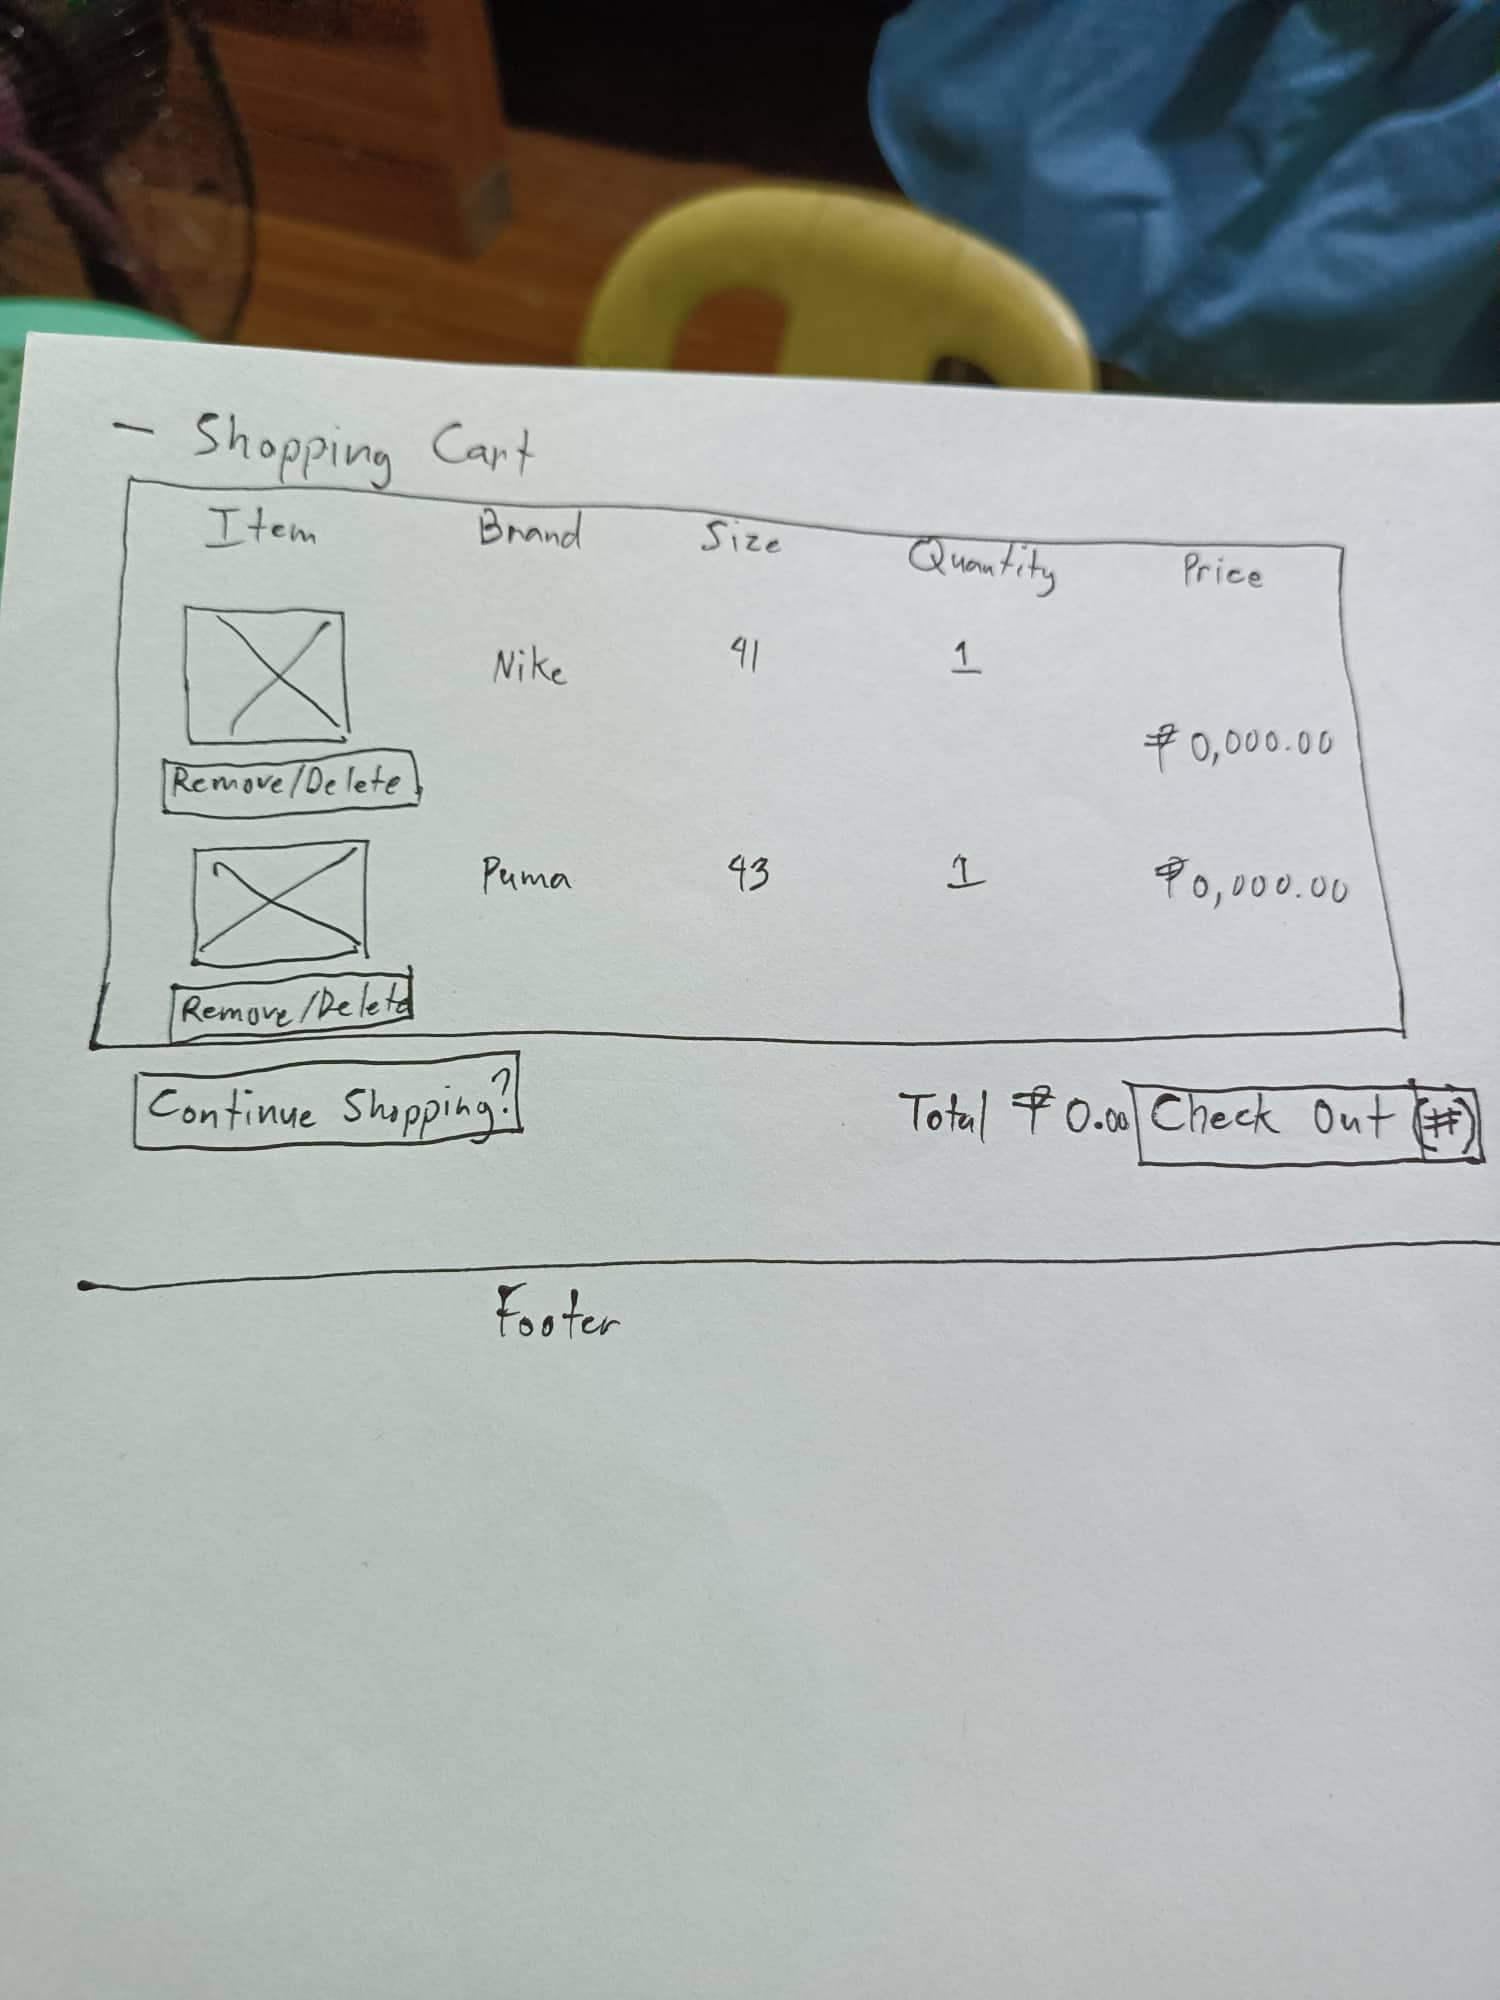 - Shopping Cart
Item Brand Size Quantity Price
Nike 41 1
₱0,000.00
Remove/Delete
Puma 43 1 ₱0,000.00
Remove/Delete
Continue Shopping? Total ₱0.00 Check Out (#)
Footer